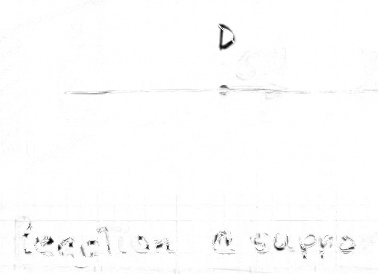 D
reaction @ suppo